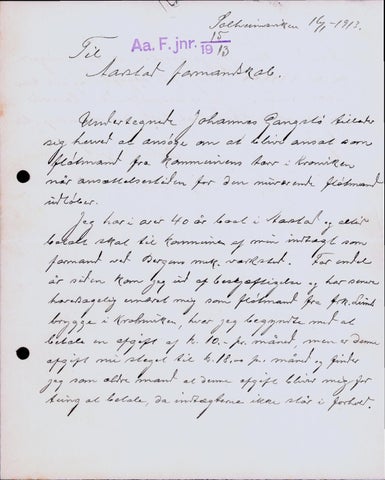 Solheimsviken 16/1-1913.
Aa. F. jnr. 15/1913
Til
Aarstad formandskab.
Undertegnede Johannes Gangstø tillader
sig herved at ansøge om at blive ansat som
fløtmand fra kommunens tarr i Kroniken
når ansættelsestiden for den nuværende fløtmand
udløber.
Jeg har i over 40 år boet i Aarstad og altid
betalt skat til kommunen af min indtægt som
formand ved Bergens mek. værksted. For endel
år siden kom jeg ud af beskjæftigelse og har senere
hovedsagelig ernæret mig som fløtmand fra frk.
brygge i Kroniken, hvor jeg begyndte med at
betale en afgift af k. 10.- pr. månd, men er denne
afgift nu steget til k. 18.00 pr månd og finder
jeg som ældre mand at denne afgift bliver mig for
tung at betale, da indtægterne ikke står i forhold.